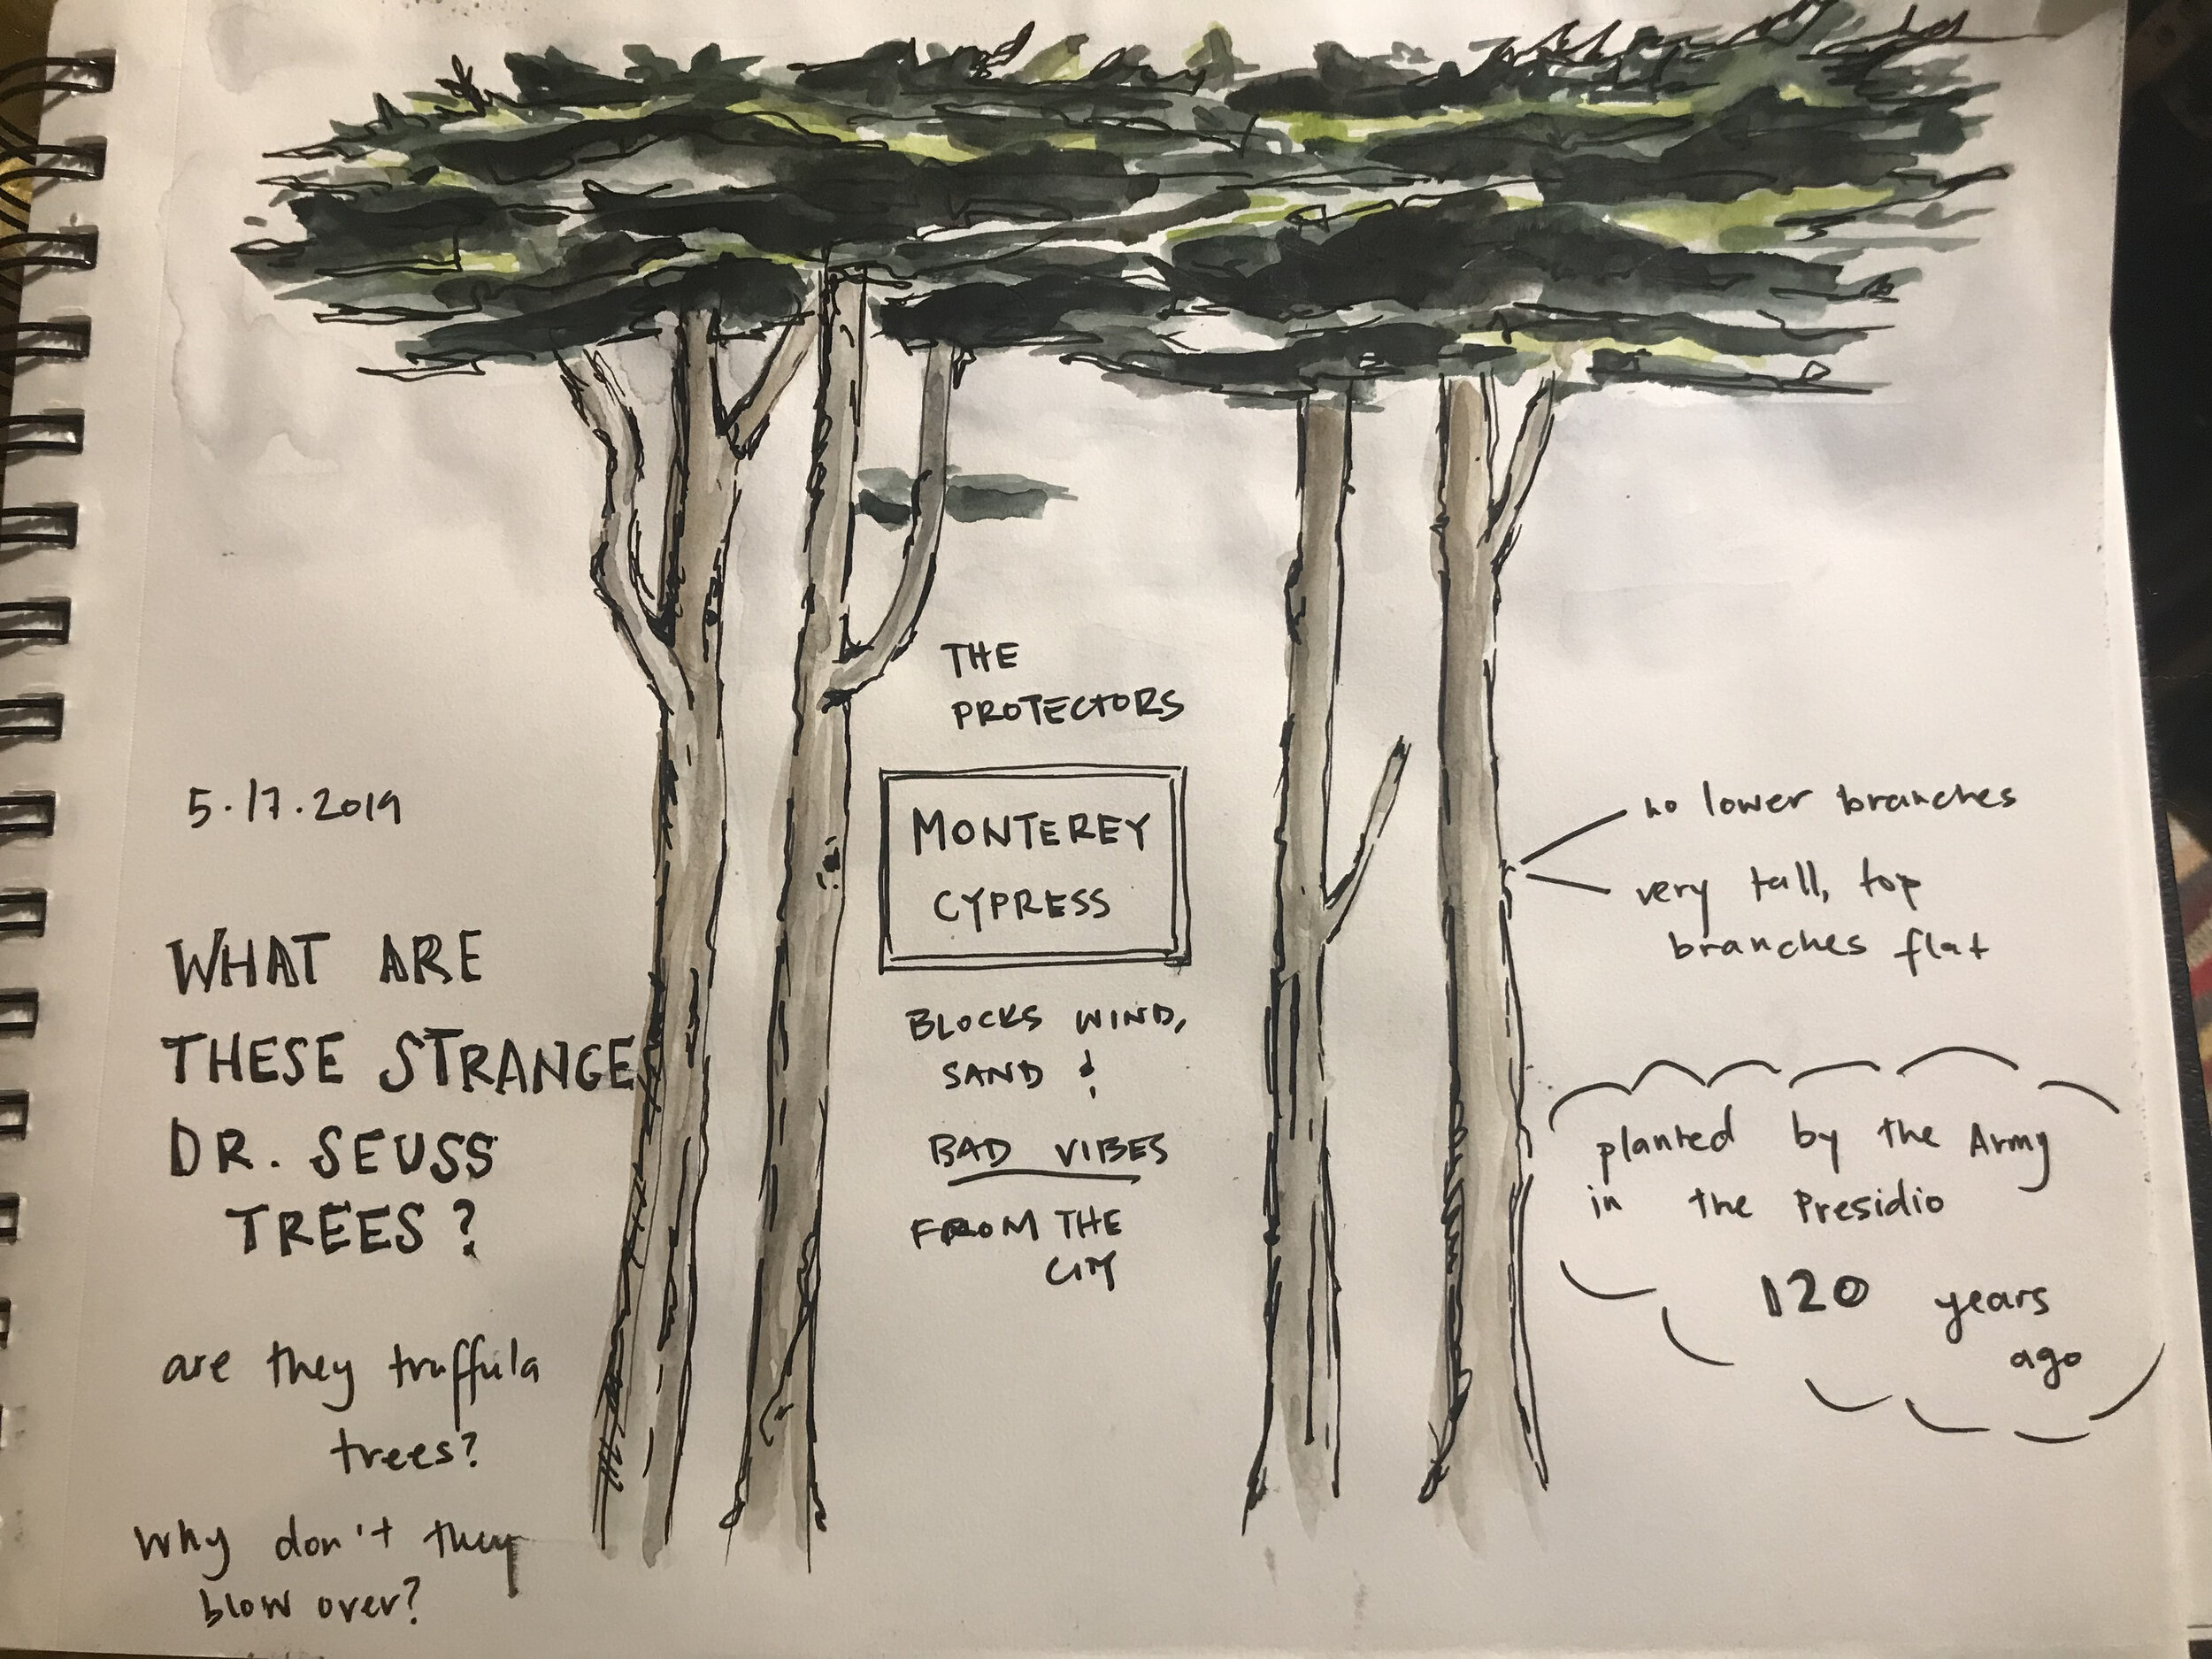 5.17.2019
WHAT ARE
THESE STRANGE
DR. SEUSS
TREES?
are they truffula
trees?
why don't they
blow over?
THE
PROTECTORS
MONTEREY
CYPRESS
BLOCKS WIND,
SAND &
BAD VIBES
FROM THE
CITY
no lower branches
very tall, top
branches flat
planted by the Army
in the Presidio
120 years
ago